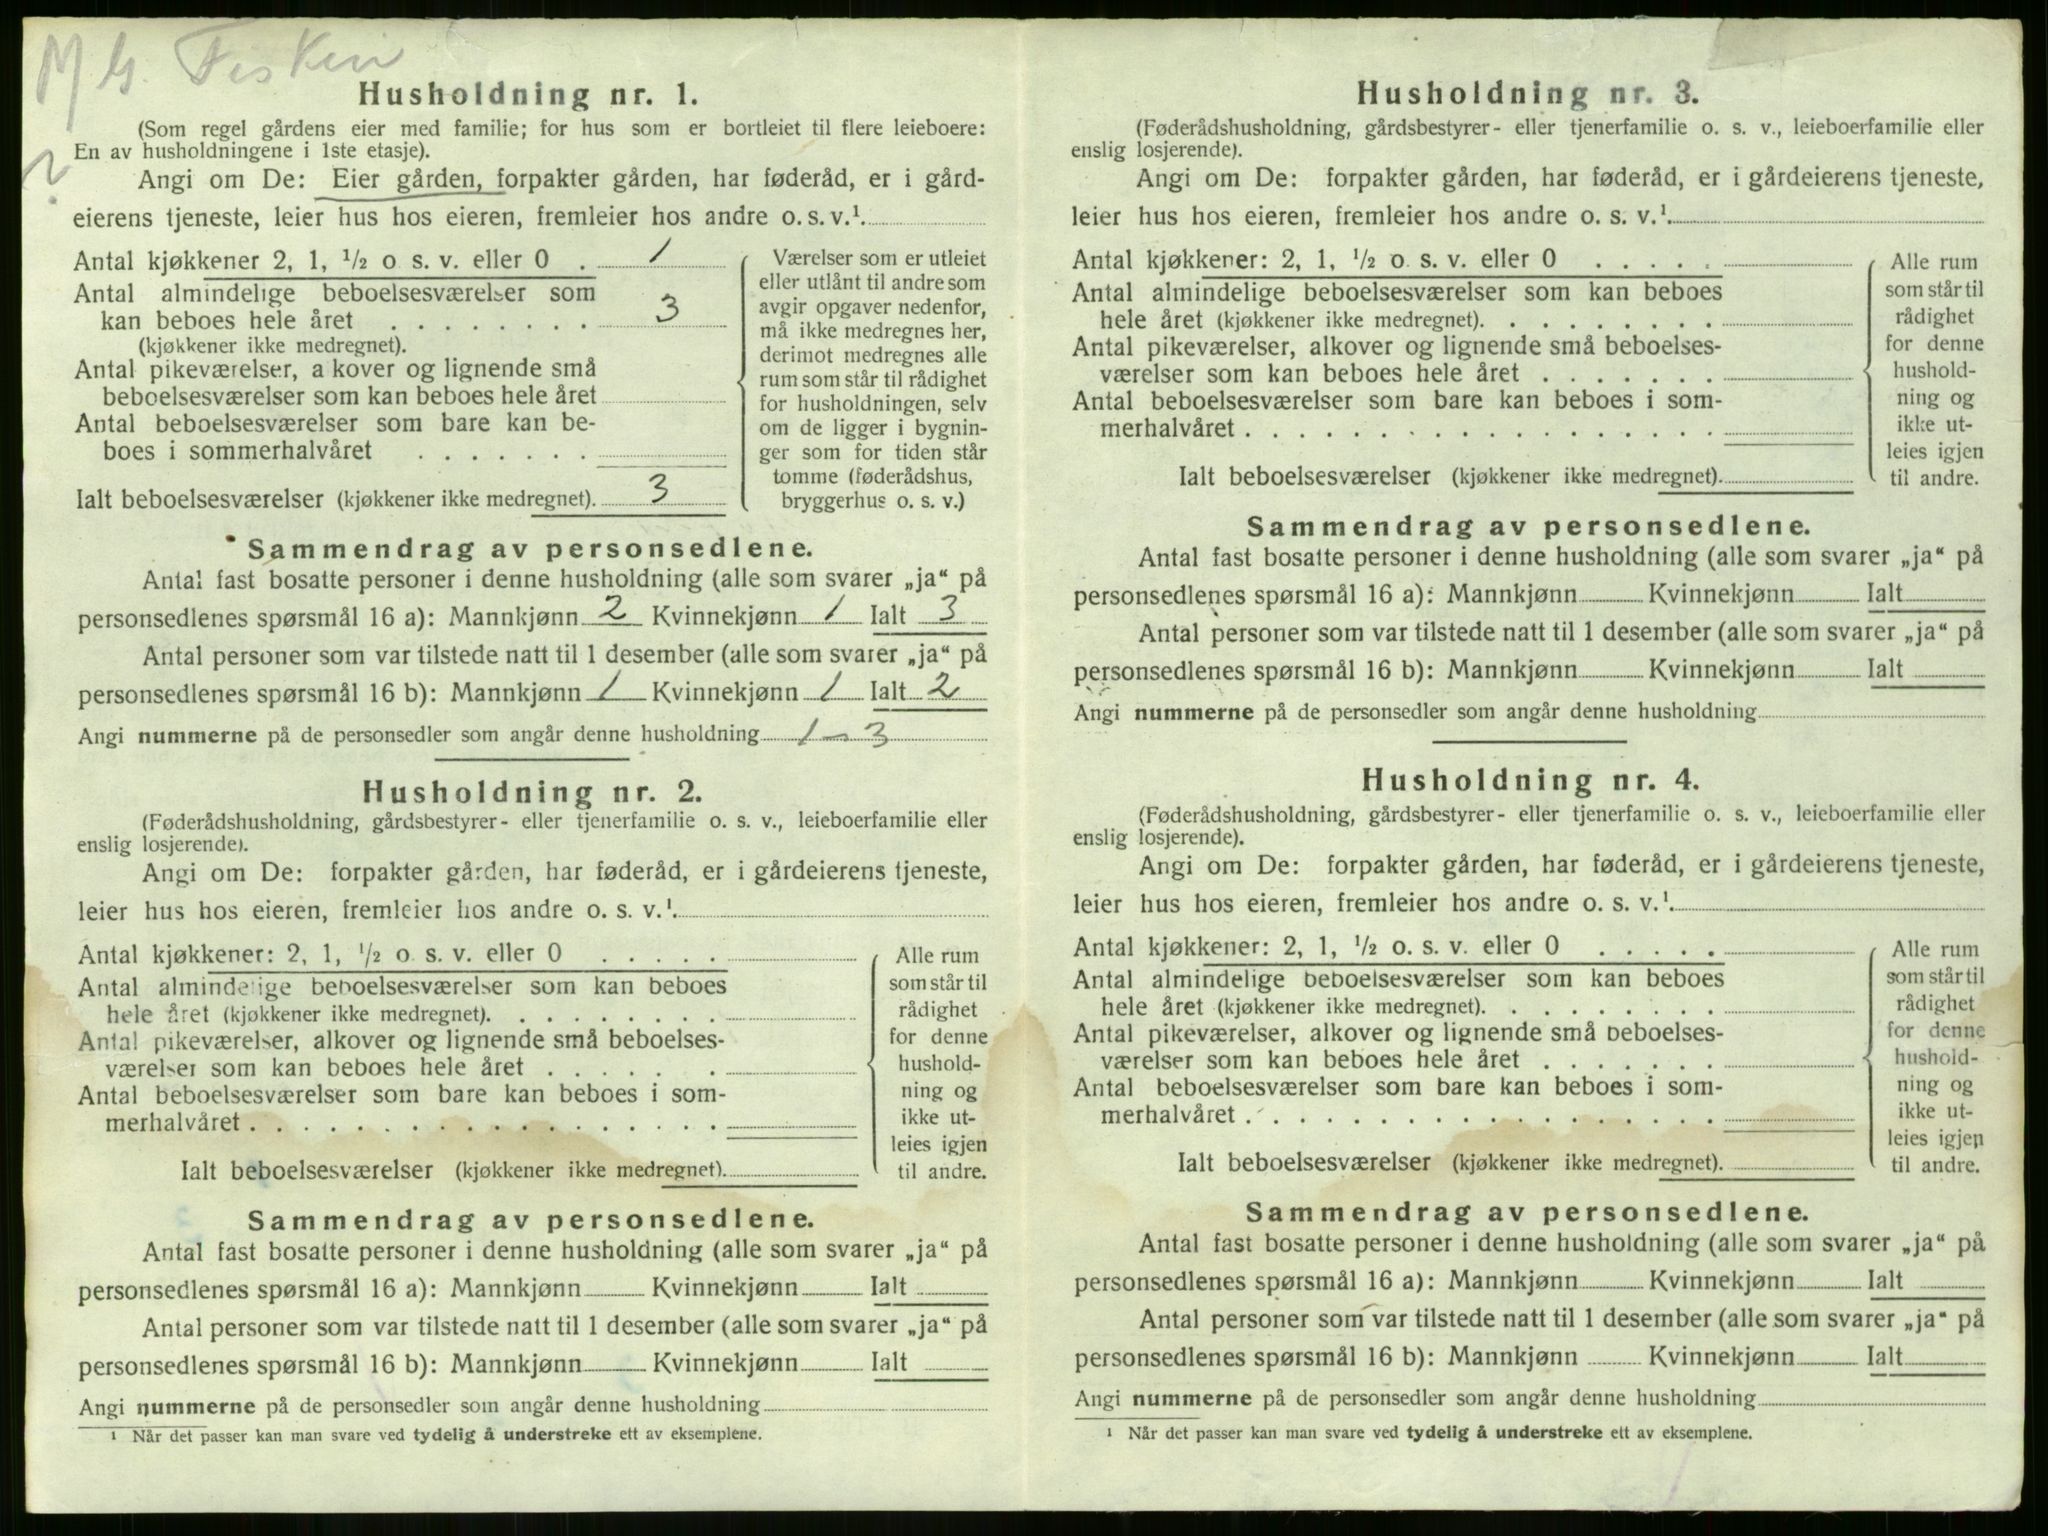 Husholdning nr. 1.
(Som regel gårdens eier med familie; for hus som er bortleiet til flere leieboere:
En av husholdningene i 1ste etasje).
Angi om De: Eier gården, forpakter gården, har føderåd, er i gård-
eierens tjeneste, leier hus hos eieren, fremleier hos andre o. s. v.¹.
Antal kjøkkener 2, 1, ½ o s. v. eller 0 . 1
Antal almindelige beboelsesværelser som
kan beboes hele året . . . . . . . . 3
(kjøkkener ikke medregnet).
Antal pikeværelser, a kover og lignende små
beboelsesværelser som kan beboes hele året
Antal beboelsesværelser som bare kan be-
boes i sommerhalvåret . . . . . . .
Ialt beboelsesværelser (kjøkkener ikke medregnet). 3
Værelser som er utleiet
eller utlånt til andre som
avgir opgaver nedenfor,
må ikke medregnes her,
derimot medregnes alle
rum som står til rådighet
for husholdningen, selv
om de ligger i bygnin-
ger som for tiden står
tomme (føderådshus,
bryggerhus o. s. v.)
Sammendrag av personsedlene.
Antal fast bosatte personer i denne husholdning (alle som svarer „ja“ på
personsedlenes spørsmål 16 a): Mannkjønn 2 Kvinnekjønn 1 Ialt 3
Antal personer som var tilstede natt til 1 desember (alle som svarer „ja“ på
personsedlenes spørsmål 16 b): Mannkjønn 1 Kvinnekjønn 1 Ialt 2
Angi nummerne på de personsedler som angår denne husholdning 1-3
Husholdning nr. 2.
(Føderådshusholdning, gårdsbestyrer- eller tjenerfamilie o. s. v., leieboerfamilie eller
enslig losjerende).
Angi om De: forpakter gården, har føderåd, er i gårdeierens tjeneste,
leier hus hos eieren, fremleier hos andre o. s. v.¹.
Antal kjøkkener: 2, 1, ½ o s. v. eller 0 . . . . .
Antal almindelige beboelsesværelser som kan beboes
hele året (kjøkkener ikke medregnet). . . . . . . . .
Antal pikeværelser, alkover og lignende små beboelses-
værelser som kan beboes hele året . . . . . . .
Antal beboelsesværelser som bare kan beboes i som-
merhalvåret . . . . . . . . . . . . . . . . . .
Ialt beboelsesværelser (kjøkkener ikke medregnet).
Alle rum
som står til
rådighet
for denne
hushold-
ning og
ikke ut-
leies igjen
til andre.
Sammendrag av personsedlene.
Antal fast bosatte personer i denne husholdning (alle som svarer „ja“ på
personsedlenes spørsmål 16 a): Mannkjønn Kvinnekjønn Ialt
Antal personer som var tilstede natt til 1 desember (alle som svarer „ja“ på
personsedlenes spørsmål 16 b): Mannkjønn Kvinnekjønn Ialt
Angi nummerne på de personsedler som angår denne husholdning
¹ Når det passer kan man svare ved tydelig å understreke ett av eksemplene.
Husholdning nr. 3.
(Føderådshusholdning, gårdsbestyrer- eller tjenerfamilie o. s. v., leieboerfamilie eller
enslig losjerende).
Angi om De: forpakter gården, har føderåd, er i gårdeierens tjeneste,
leier hus hos eieren, fremleier hos andre o. s. v.¹.
Antal kjøkkener: 2, 1, ½ o. s. v. eller 0 . . . . .
Antal almindelige beboelsesværelser som kan beboes
hele året (kjøkkener ikke medregnet). . . . . . . . .
Antal pikeværelser, alkover og lignende små beboelses-
værelser som kan beboes hele året . . . . . . .
Antal beboelsesværelser som bare kan beboes i som-
merhalvåret . . . . . . . . . . . . . . . . . .
Ialt beboelsesværelser (kjøkkener ikke medregnet).
Alle rum
som står til
rådighet
for denne
hushold-
ning og
ikke ut-
leies igjen
til andre.
Sammendrag av personsedlene.
Antal fast bosatte personer i denne husholdning (alle som svarer „ja“ på
personsedlenes spørsmål 16 a): Mannkjønn Kvinnekjønn Ialt
Antal personer som var tilstede natt til 1 desember (alle som svarer „ja“ på
personsedlenes spørsmål 16 b): Mannkjønn Kvinnekjønn Ialt
Angi nummerne på de personsedler som angår denne husholdning
Husholdning nr. 4.
(Føderådshusholdning, gårdsbestyrer- eller tjenerfamilie o. s. v., leieboerfamilie eller
enslig losjerende).
Angi om De: forpakter gården, har føderåd, er i gårdeierens tjeneste,
leier hus hos eieren, fremleier hos andre o. s. v.¹.
Antal kjøkkener: 2, 1, ½ o. s. v. eller 0 . . . . .
Antal almindelige beboelsesværelser som kan beboes
hele året (kjøkkener ikke medregnet). . . . . . . . .
Antal pikeværelser, alkover og lignende små beboelses-
værelser som kan beboes hele året . . . . . . .
Antal beboelsesværelser som bare kan beboes i som-
merhalvåret . . . . . . . . . . . . . . . . . .
Ialt beboelsesværelser (kjøkkener ikke medregnet).
Alle rum
som står til
rådighet
for denne
hushold-
ning og
ikke ut-
leies igjen
til andre.
Sammendrag av personsedlene.
Antal fast bosatte personer i denne husholdning (alle som svarer „ja“ på
personsedlenes spørsmål 16 a): Mannkjønn Kvinnekjønn Ialt
Antal personer som var tilstede natt til 1 desember (alle som svarer „ja“ på
personsedlenes spørsmål 16 b): Mannkjønn Kvinnekjønn Ialt
Angi nummerne på de personsedler som angår denne husholdning
¹ Når det passer kan man svare ved tydelig å understreke ett av eksemplene.